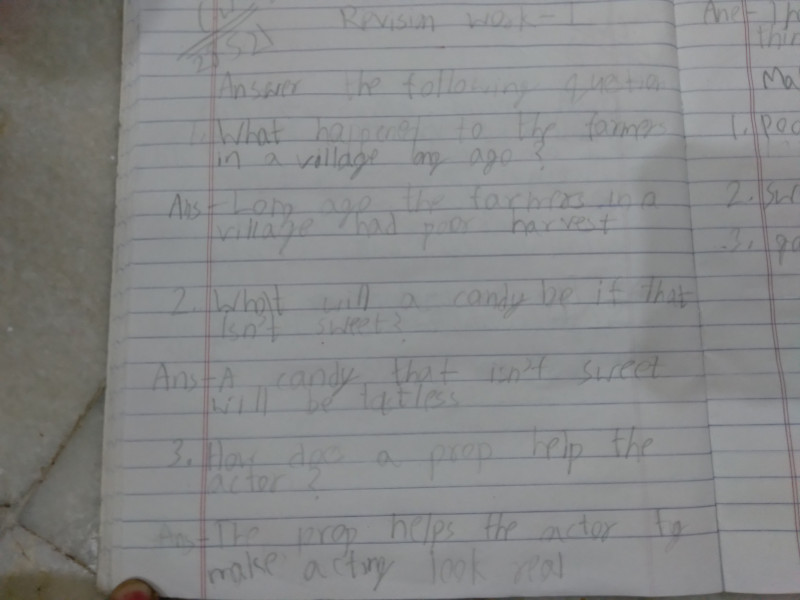 Revision Work-1
Answer the following question
1. What happened to the farmers
in a village long ago?
Ans-Long ago the farmers in a
village had poor harvest
2. What will a candy be if that
isn't sweet?
Ans-A candy that isn't sweet
will be
3. How does a prop help the
actor?
Ans-The prop helps the actor to
make acting look real
Ans-
1.
2.
3.